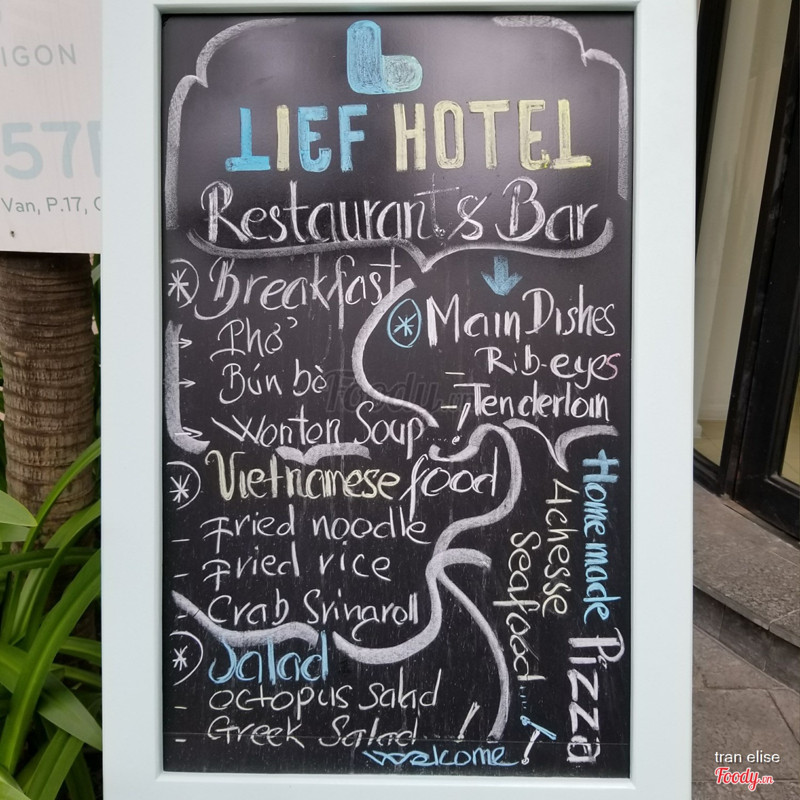 IGON
57
Van, P.17,
LIEF HOTEL
Restaurant & Bar
* Breakfast
→ Phở
→ Bún bò
→ Wonton Soup...!
* Vietnamese food
- Fried noodle
- Fried rice
- Crab Sringroll
* Salad
- octopus salad
- Greek Salad...!
Welcome
* Main Dishes
- Rib-eyes
- Tenderloin
Home made Pizza
4chesse
Seafood...!
Foody.vn
tran elise
Foody.vn